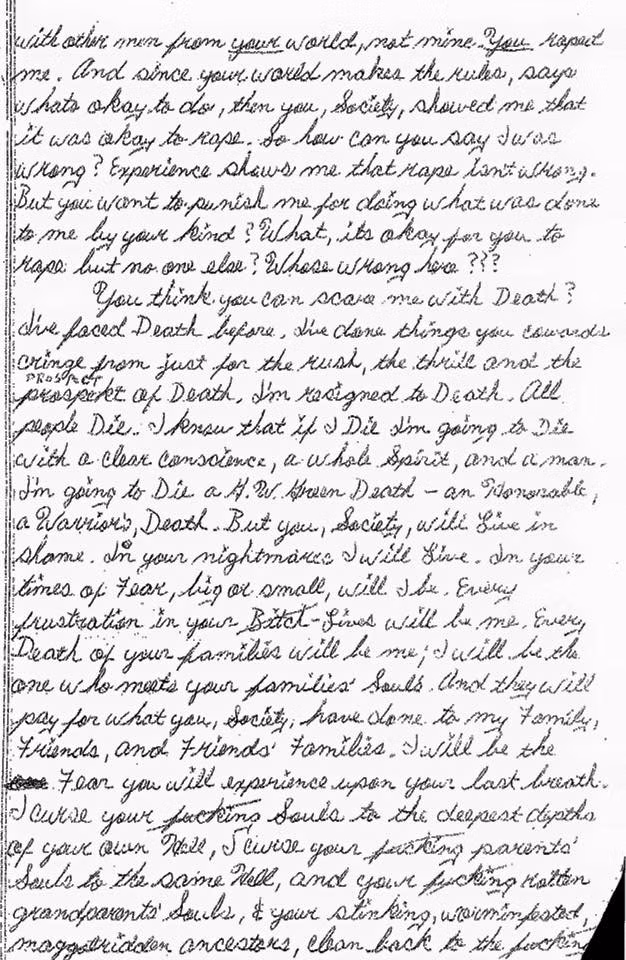 with other men from your world, not mine. You raped
me. And since your world makes the rules, says
whats okay to do, then you, Society, showed me that
it was okay to rape. So how can you say I was
wrong? Experience shows me that rape isnt wrong.
But you want to punish me for doing what was done
to me by your kind? What, its okay for you to
rape but no one else? Whose wrong here ???
You think you can scare me with Death?
I've faced Death before. I've done things you cowards
cringe from just for the rush, the thrill and the
PROSPECT
prospekt of Death. I'm resigned to Death. All
people Die. I know that if I Die I'm going to Die
with a clear conscience, a whole Spirit, and a man.
I'm going to Die a G.W. Green Death - an Honorable,
a Warrior's, Death. But you, Society, will Live in
shame. In your nightmares I will Live. In your
times of Fear, big or small, will I be. Every
frustration in your Bitch-Lives will be me. Every
Death of your families will be me; I will be the
one who meets your families' Souls. And they will
pay for what you, Society, have done to my Family,
Friends, and Friends' Families. I will be the
Fear you will experience upon your last breath.
I curse your fucking Souls to the deepest depths
of your own Hell, I curse your fucking parents'
Souls to the same Hell, and your fucking rotten
grandparents' Souls, & your stinking, worminfested,
maggotridden ancestors, clean back to the fucking